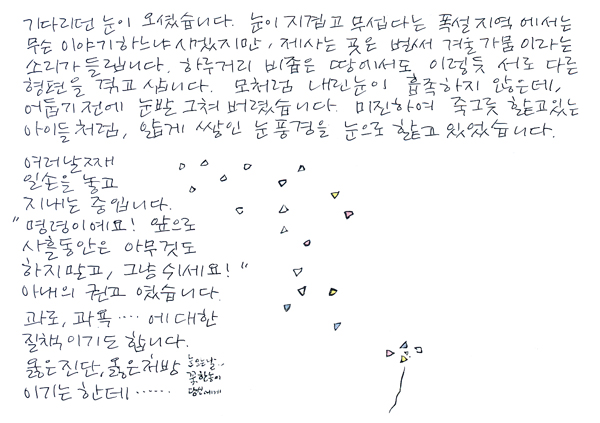 기다리던 눈이 오셨습니다. 눈이 지겹고 무섭다는 폭설지역에서는
무슨 이야기 하느냐 시겠지만, 제 사는 곳은 벌써 겨울가뭄이라는
소리가 들립니다. 하루거리 비좁은 땅에서도 이렇듯 서로 다른
형편을 겪고 삽니다. 모처럼 내린 눈이 흡족하지 않은데,
어둡기 전에 눈발 그쳐 버렸습니다. 미진하여 죽그릇 핥고있는
아이들처럼, 얇게 쌓인 눈풍경을 눈으로 핥고 있었습니다.
여러날째
일손을 놓고
지내는 중입니다.
"명령이예요! 앞으로
사흘동안은 아무것도
하지말고, 그냥 쉬세요!"
아내의 권고 였습니다.
과로, 과욕……에 대한
질책이기도 합니다.
옳은진단, 옳은처방
이기는 한데……
눈오는날…
꽃한송이
당신에게